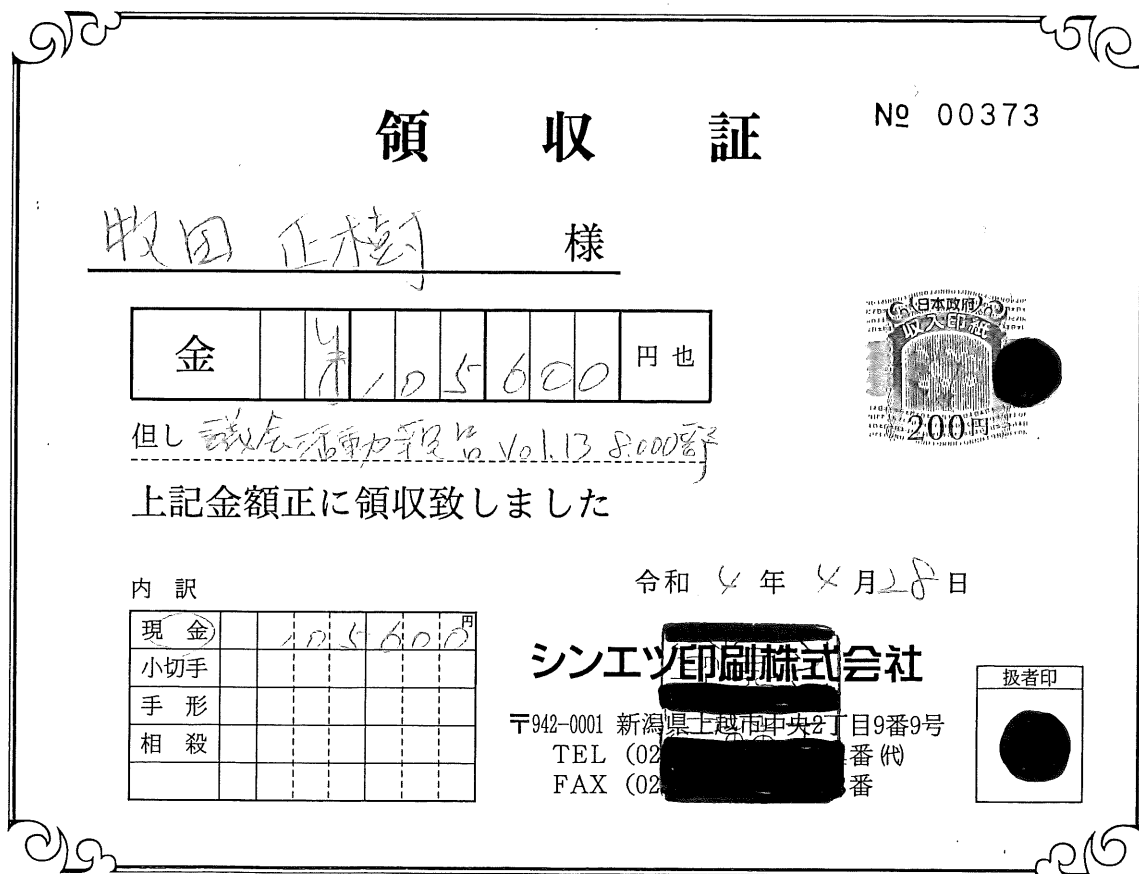 領収証
№ 00373
牧田 正樹 様
金 ¥105600 円也
日本政府
収入印紙
200円
但し 議会活動報告 Vol.13 8.000部
上記金額正に領収致しました
令和 4 年 4 月 28 日
内訳
現金 105600円
小切手
手形
相殺
シンエツ印刷株式会社
〒942-0001 新潟県上越市中央2丁目9番9号
TEL (02 番(代)
FAX (02 番
扱者印